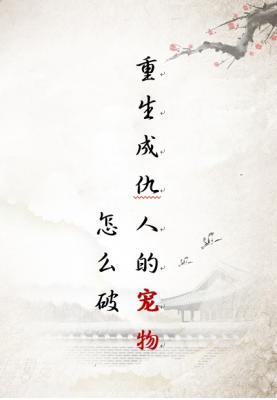 重生成仇人的宠物
怎么破